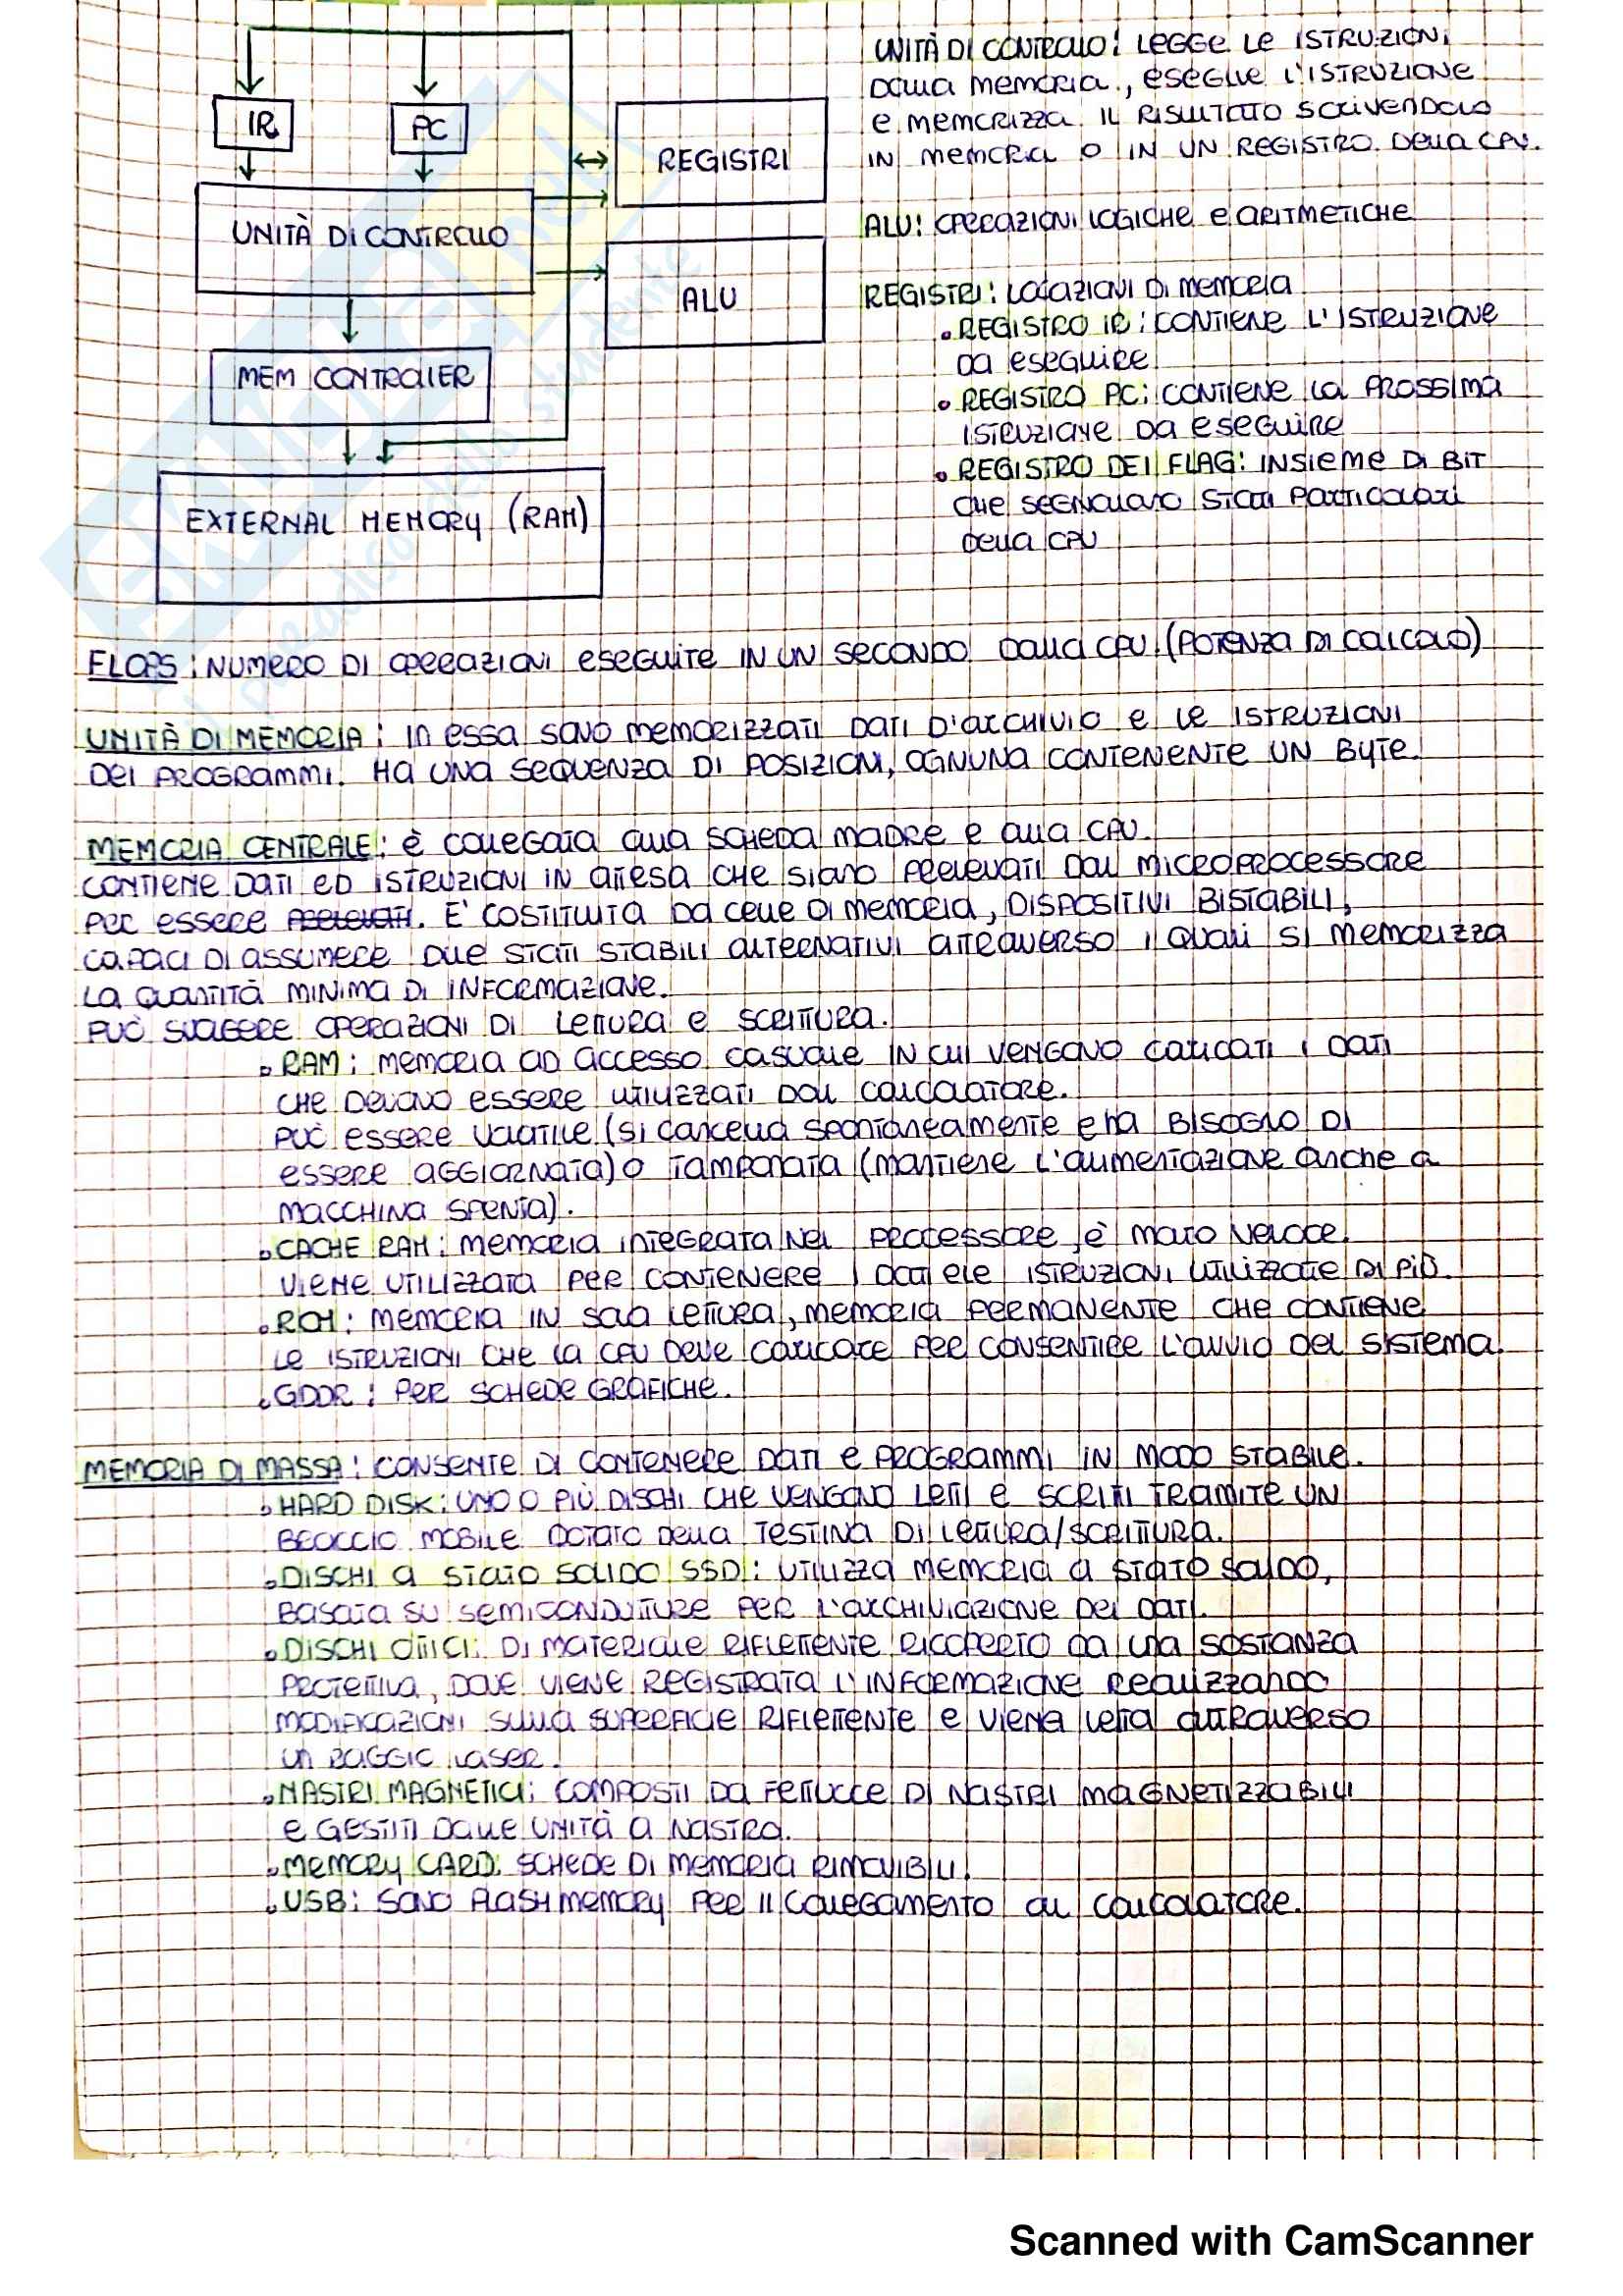 IR
PC
REGISTRI
UNITÀ DI CONTROLLO
ALU
MEM CONTROLLER
EXTERNAL MEMORY (RAM)
UNITÀ DI CONTROLLO: LEGGE LE ISTRUZIONI
DALLA MEMORIA, ESEGUE L'ISTRUZIONE
E MEMORIZZA IL RISULTATO SCRIVENDOLO
IN MEMORIA O IN UN REGISTRO DELLA CPU.
ALU: OPERAZIONI LOGICHE E ARITMETICHE
REGISTRI: LOCAZIONI DI MEMORIA
• REGISTRO IR: CONTIENE L'ISTRUZIONE
DA ESEGUIRE
• REGISTRO PC: CONTIENE LA PROSSIMA
ISTRUZIONE DA ESEGUIRE
• REGISTRO DEI FLAG: INSIEME DI BIT
CHE SEGNALANO STATI PARTICOLARI
DELLA CPU
FLOPS: NUMERO DI OPERAZIONI ESEGUITE IN UN SECONDO DALLA CPU. (POTENZA DI CALCOLO)
UNITÀ DI MEMORIA: IN ESSA SONO MEMORIZZATI DATI D'ARCHIVIO E LE ISTRUZIONI
DEI PROGRAMMI. HA UNA SEQUENZA DI POSIZIONI, OGNUNA CONTENENTE UN BYTE.
MEMORIA CENTRALE: È COLLEGATA ALLA SCHEDA MADRE E ALLA CPU.
CONTIENE DATI ED ISTRUZIONI IN ATTESA CHE SIANO PRELEVATI DAL MICROPROCESSORE
PER ESSERE PRELEVATI. E' COSTITUITA DA CELLE DI MEMORIA, DISPOSITIVI BISTABILI,
CAPACI DI ASSUMERE DUE STATI STABILI ALTERNATIVI ATTRAVERSO I QUALI SI MEMORIZZA
LA QUANTITÀ MINIMA DI INFORMAZIONE.
PUÒ SVOLGERE OPERAZIONI DI LETTURA E SCRITTURA.
• RAM: MEMORIA AD ACCESSO CASUALE IN CUI VENGONO CARICATI I DATI
CHE DEVONO ESSERE UTILIZZATI DAL CALCOLATORE.
PUÒ ESSERE VOLATILE (SI CANCELLA SPONTANEAMENTE E HA BISOGNO DI
ESSERE AGGIORNATA) O TAMPONATA (MANTIENE L'ALIMENTAZIONE ANCHE A
MACCHINA SPENTA).
• CACHE RAM: MEMORIA INTEGRATA NEL PROCESSORE, È MOLTO VELOCE.
VIENE UTILIZZATA PER CONTENERE I DATI E LE ISTRUZIONI UTILIZZATE DI PIÙ.
• ROM: MEMORIA IN SOLA LETTURA, MEMORIA PERMANENTE CHE CONTIENE
LE ISTRUZIONI CHE LA CPU DEVE CARICARE PER CONSENTIRE L'AVVIO DEL SISTEMA.
• GDDR: PER SCHEDE GRAFICHE.
MEMORIA DI MASSA: CONSENTE DI CONTENERE DATI E PROGRAMMI IN MODO STABILE.
• HARD DISK: UNO O PIÙ DISCHI CHE VENGONO LETTI E SCRITTI TRAMITE UN
BRACCIO MOBILE DOTATO DELLA TESTINA DI LETTURA/SCRITTURA.
• DISCHI A STATO SOLIDO SSD: UTILIZZA MEMORIA A STATO SOLIDO,
BASATA SU SEMICONDUTTURE PER L'ARCHIVIAZIONE DEI DATI.
• DISCHI OTTICI: DI MATERIALE RIFLETTENTE RICOPERTO DA UNA SOSTANZA
PROTETTIVA, DOVE VIENE REGISTRATA L'INFORMAZIONE REALIZZANDO
MODIFICAZIONI SULLA SUPERFICIE RIFLETTENTE E VIENE LETTA ATTRAVERSO
UN RAGGIO LASER.
• NASTRI MAGNETICI: COMPOSTI DA FETTUCCE DI NASTRI MAGNETIZZABILI
E GESTITI DALLE UNITÀ A NASTRO.
• MEMORY CARD: SCHEDE DI MEMORIA RIMOVIBILI.
• USB: SONO FLASH MEMORY PER IL COLLEGAMENTO AL CALCOLATORE.
Scanned with CamScanner